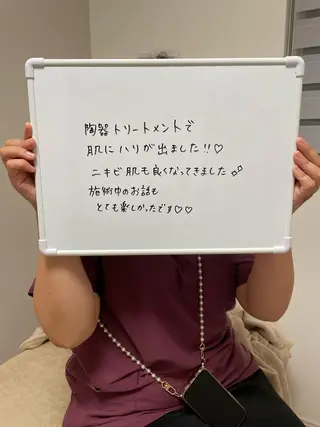 陶器トリートメントで
肌にハリが出ました!!♡
ニキビ肌も良くなってきました
施術中のお話も
とても楽しかったです♡♡